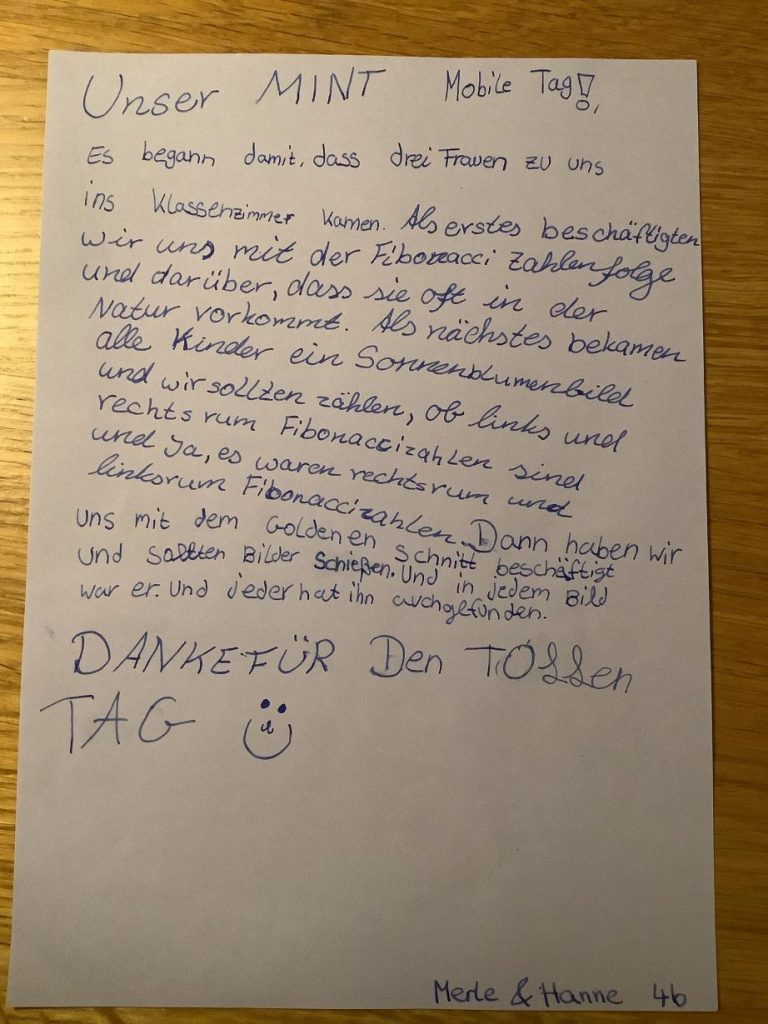 Unser MINT Mobile Tag!
Es begann damit, dass drei Frauen zu uns
ins Klassenzimmer kamen. Als erstes beschäftigten
wir uns mit der Fibonacci Zahlenfolge
und darüber, dass sie oft in der
Natur vorkommt. Als nächstes bekamen
alle Kinder ein Sonnenblumenbild
und wir sollten zählen, ob links und
rechts rum Fibonaccizahlen sind
und Ja, es waren rechtsrum und
linksrum Fibonaccizahlen. Dann haben wir
uns mit dem Goldenen Schnitt beschäftigt
und sollten Bilder Schießen. Und in jedem Bild
war er. Und jeder hat ihn auch gefunden.
DANKE FÜR Den TOLLen
TAG
Merle & Hanne 4b